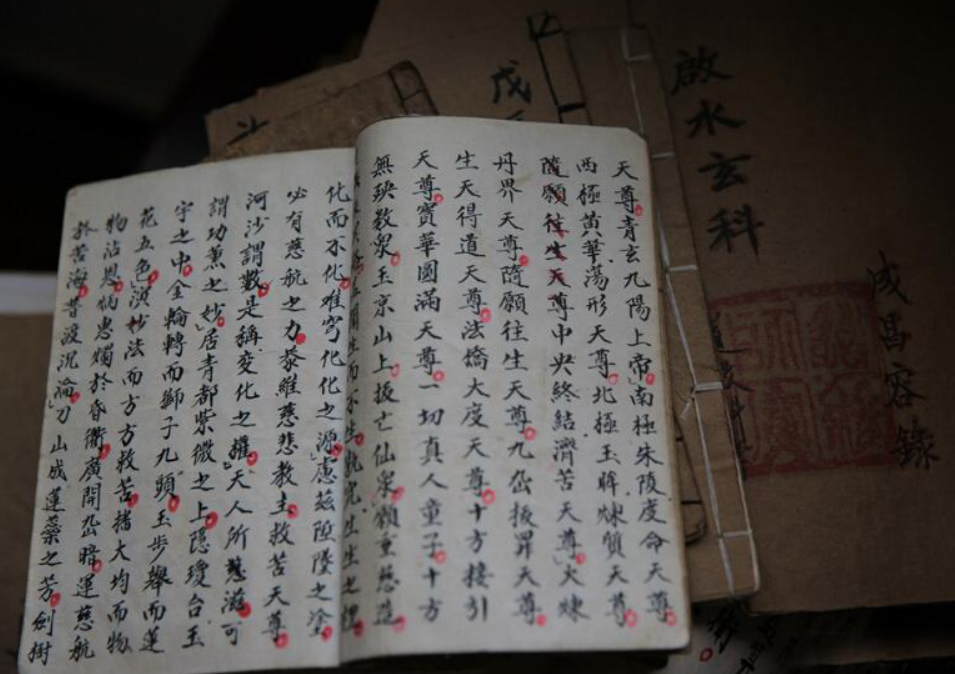 天尊青玄九陽上帝南極朱陵度命天尊
西極黃華蕩形天尊北極玉眸煉質天尊
隨願往生天尊中央終結濟苦天尊火煉
丹界天尊隨願往生天尊九岳拔罪天尊
生天得道天尊法橋大度天尊十方接引
天尊寶華圓滿天尊一切真人童子十方
無鞅数衆玉京山上拔亡仙衆願垂慈造
化而不化难穹化化之源慮茲陟陵之塗
必有慈航之力恭維慈悲教主救苦天尊
河沙謂數是稱变化之權天人所慈滋可
謂功蕙之妙居青都紫微之上隱瓊台玉
宇之中金輪轉而獅子九頭玉步舉而蓮
花五色演妙法而方方救苦播大均而物
物沾恩炳惠燭於昏衢廣開岳暗運慈航
於苦海普渡沉淪刀山成蓮蕊之芳劍樹
啟水玄科
成昌容錄
戊